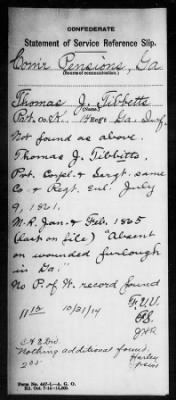 CONFEDERATE
Statement of Service Reference Slip.
Com'r Pensions, Ga
(Source of communication.)
Thomas J. Tibbetts
Pvt. Co. K. Ga. Inf.
Not found as above.
Thomas J. Tibbitts,
Pvt. Corpl. & Sergt. same
Co. & Regt. Enl. July
9, 1861.
M.R. Jan. & Feb. 1865
(last on file) "Absent
on wounded furlough
in Ga."
No P. of W. record found
11 10/21/14
Nothing additional found.